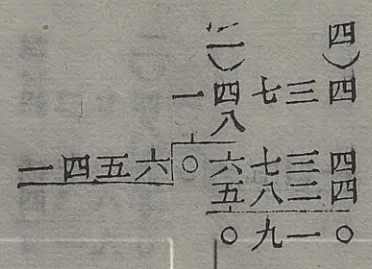 (二) 四)
一四七三四
八
一四五六 ○六七三四
五八二四
○九一○